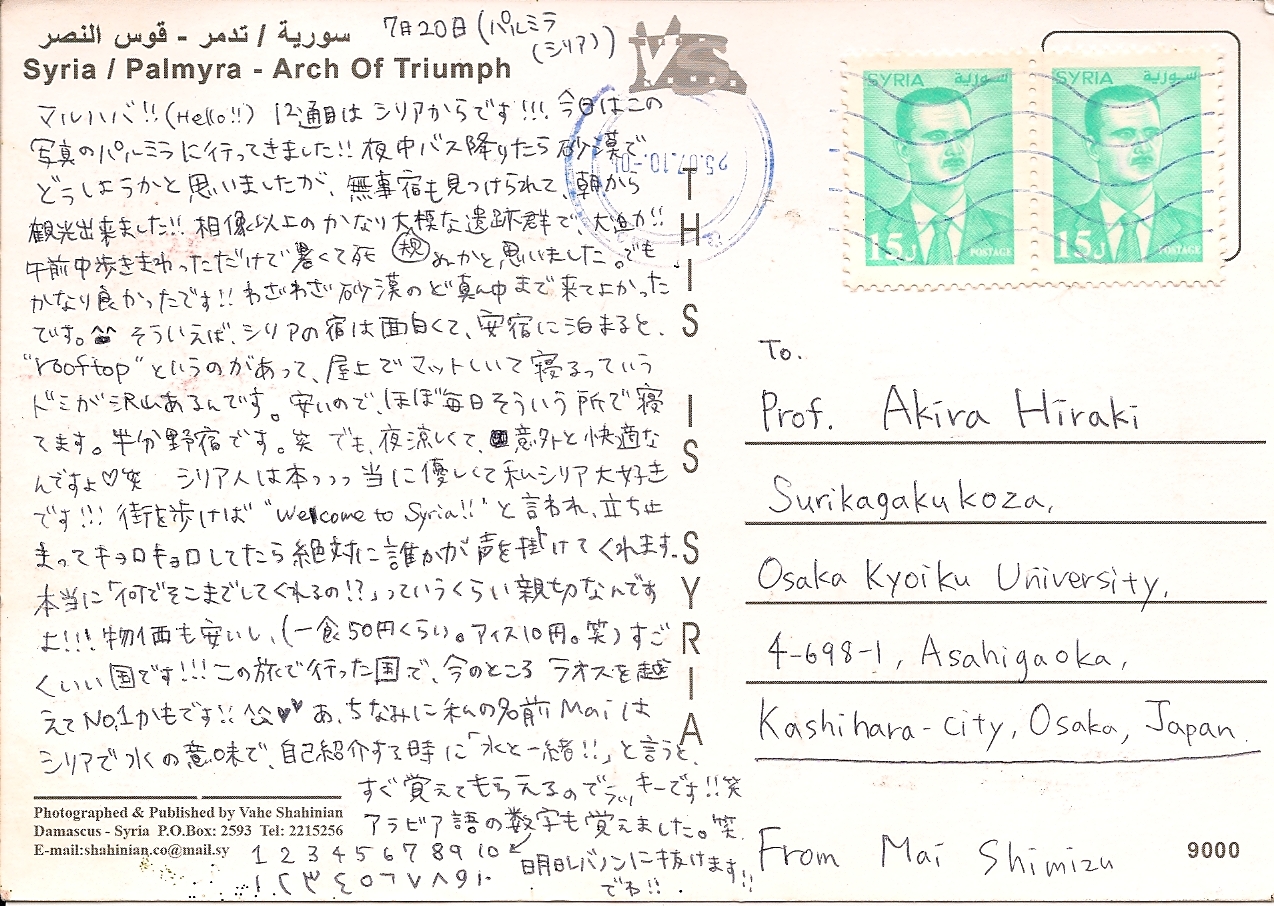 سورية / تدمر - قوس النصر
7月20日(パルミラ
(シリア))
Syria / Palmyra - Arch Of Triumph
V.S.
マルハバ!!(Hello!!) 12通目は シリアからです!!! 今日はこの
写真のパルミラに行ってきました!! 夜中バス降りたら砂漠で
どうしようかと思いましたが、無事宿も見つけられて、朝から
観光出来ました!! 相像以上のかなり大模な遺跡群で、大迫力!!
午前中歩きまわっただけで暑くて死ぬかと思いました。でも
規
かなり良かったです!! わざわざ砂漠のど真ん中まで来てよかった
です。^^ そういえば、シリアの宿は面白くて、安宿に泊まると、
"rooftop"というのがあって、屋上でマットしいて寝るっていう
ドミが沢山あるんです。安いので、ほぼ毎日そういう所で寝
てます。半分野宿です。笑 でも、夜涼しくて、意外と快適な
んですよ♡笑 シリア人は本っっっ当に優しくて私シリア大好き
です!!! 街を歩けば"Welcome to Syria!!"と言われ、立ち止
まってキョロキョロしてたら絶対に誰かが声を掛けてくれます。
本当に「何でそこまでしてくれるの!?」っていうくらい親切なんです
よ!!! 物価も安いし、(一食50円くらい。アイス10円。笑) すご
くいい国です!!! この旅で行った国で、今のところ ラオスを越
えてNo.1かもです!! ^^♥♥ あ、ちなみに私の名前Maiは
シリアで水の意味で、自己紹介する時に「水と一緒!!」と言うと、
すぐ覚えてもらえるのでラッキーです!!笑
アラビア語の数字も覚えました。笑
1 2 3 4 5 6 7 8 9 10
١ ٢ ٣ ٤ ٥ ٦ ٧ ٨ ٩ ١٠
明日レバノンに抜けます!!
でわ!!
Photographed & Published by Vahe Shahinian
Damascus - Syria P.O.Box: 2593 Tel: 2215256
E-mail:shahinian.co@mail.sy
THIS IS SYRIA
SYRIA سورية
15ل
POSTAGE
SYRIA سورية
15ل
POSTAGE
To.
Prof. Akira Hiraki
Surikagakukoza,
Osaka Kyoiku University,
4-698-1, Asahigaoka,
Kashihara-city, Osaka, Japan.
From Mai Shimizu
9000